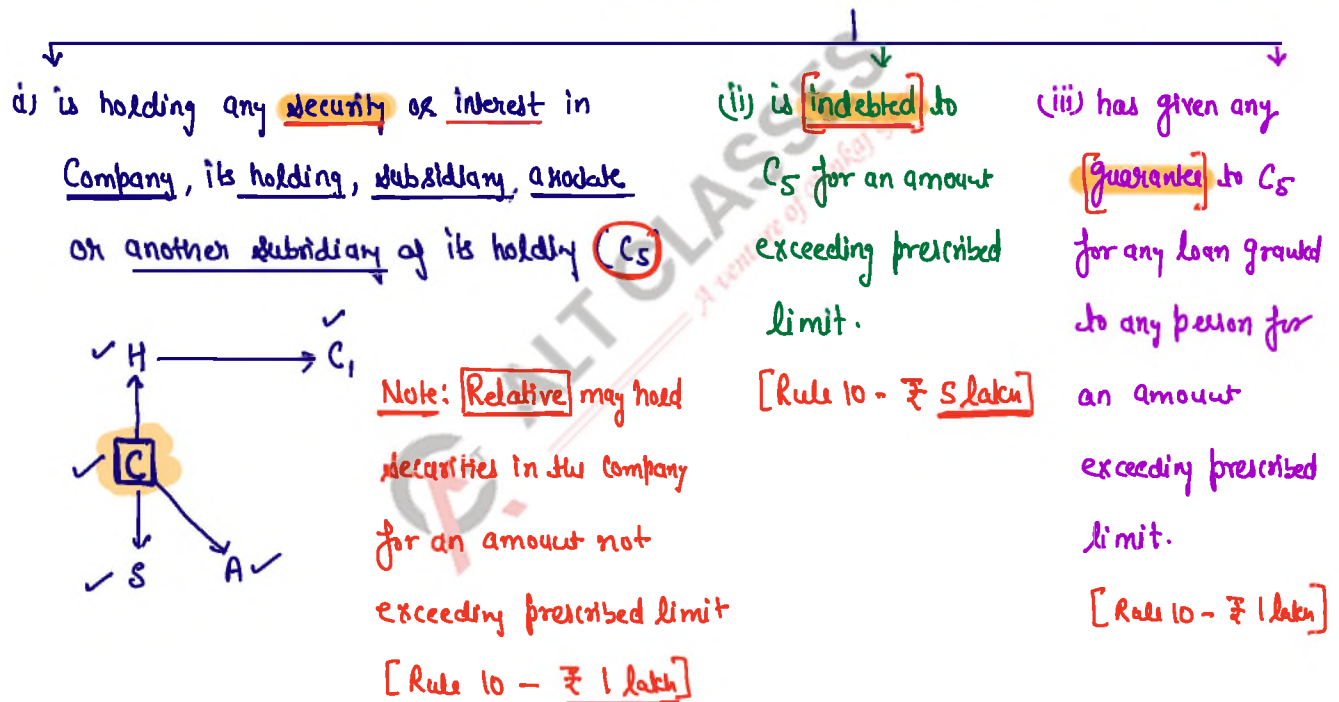 i) is holding any security or interest in
Company, its holding, subsidiary, associate
or another subsidiary of its holding (C5)
H C1
C
S A
Note: Relative may hold
securities in the Company
for an amount not
exceeding prescribed limit
[Rule 10 - ₹ 1 lakh]
(ii) is [indebted] to
C5 for an amount
exceeding prescribed
limit.
[Rule 10 - ₹ 5 lakh]
(iii) has given any
[guarantee] to C5
for any loan granted
to any person for
an amount
exceeding prescribed
limit.
[Rule 10 - ₹ 1 lakh]
ALT CLASSES
A venture of